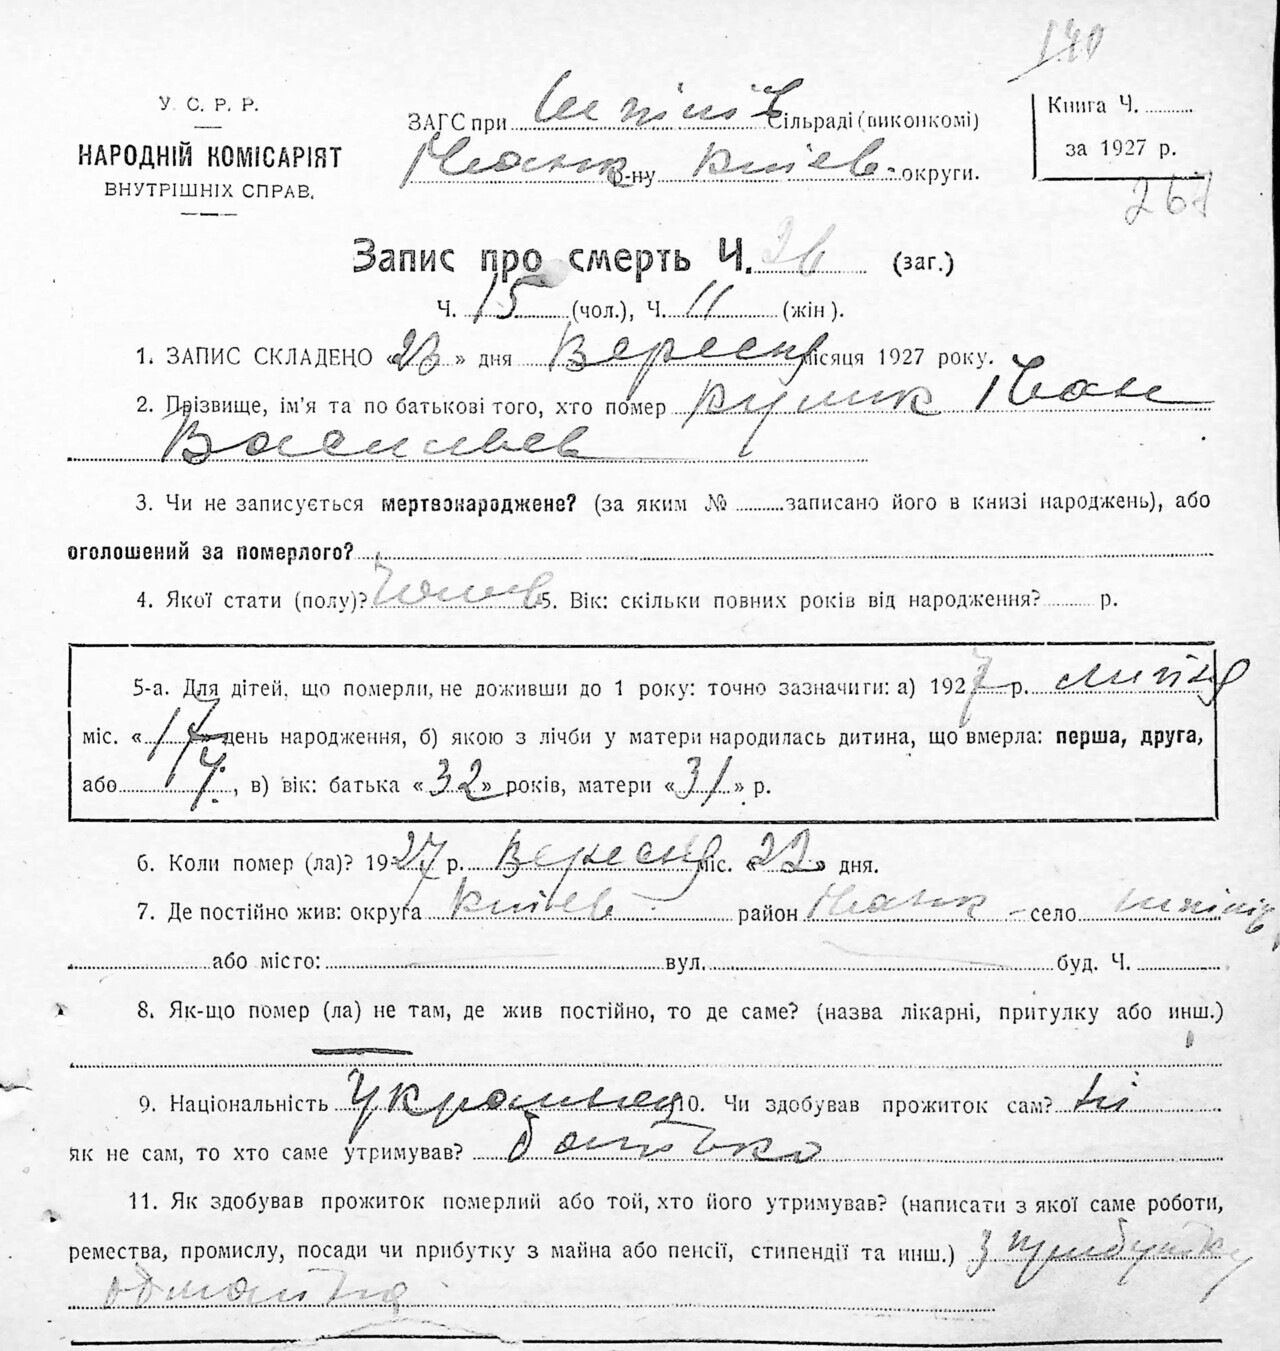 140
У. С. Р. Р.
НАРОДНІЙ КОМІСАРІЯТ
ВНУТРІШНІХ СПРАВ.
ЗАГС при Шпилів Сільраді (виконкомі)
Іванк р-ну Київ округи.
Книга Ч. ..........
за 1927 р.
267
Запис про смерть Ч. 26 (заг.)
Ч. 15 (чол.), Ч. 11 (жін).
1. ЗАПИС СКЛАДЕНО «23» дня Вересня місяця 1927 року.
2. Прізвище, ім'я та по батькові того, хто помер Кулик Іван
Васильев
3. Чи не записується мертвонароджене? (за яким № ..........записано його в книзі народжень), або
оголошений за померлого?
4. Якої стати (полу)? Чолов 5. Вік: скільки повних років від народження? .......... р.
5-а. Для дітей, що померли, не доживши до 1 року: точно зазначити: а) 1927 р. липня
міс. «17» день народження, б) якою з лічби у матери народилась дитина, що вмерла: перша, друга,
або 4, в) вік: батька «32» років, матери «31» р.
6. Коли помер (ла)? 1927 р. Вересня міс. «22» дня.
7. Де постійно жив: округа Київ район Іванк - село Шпилів
або місто: вул. буд. Ч.
8. Як-що помер (ла) не там, де жив постійно, то де саме? (назва лікарні, притулку або инш.)
9. Національність Українец 10. Чи здобував прожиток сам? ні
як не сам, то хто саме утримував? батько
11. Як здобував прожиток померлий або той, хто його утримував? (написати з якої саме роботи,
ремества, промислу, посади чи прибутку з майна або пенсії, стипендії та инш.) З прибутку